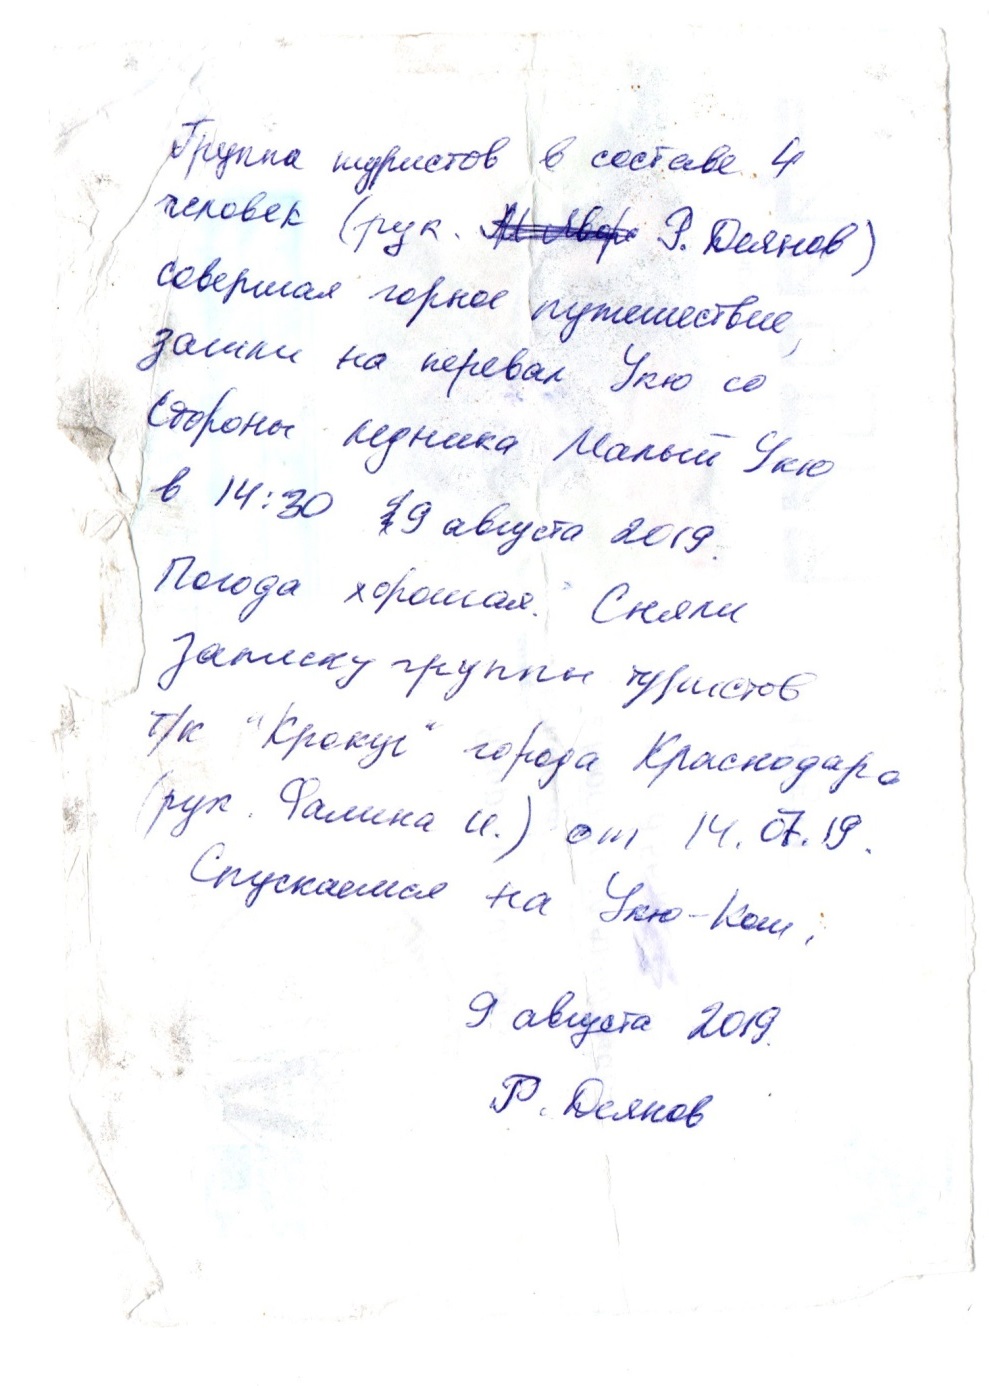 Группа туристов в составе 4
человек (рук. Р. Деянов)
совершая горное путешествие,
зашли на перевал Укю со
стороны ледника Малый Укю
в 14:30 9 августа 2019.
Погода хорошая. Сняли
записку группы туристов
т/к "Крокус" города Краснодара
(рук. Фалина И.) от 14.07.19.
Спускаемся на Укю-Кош.
9 августа 2019
Р. Деянов